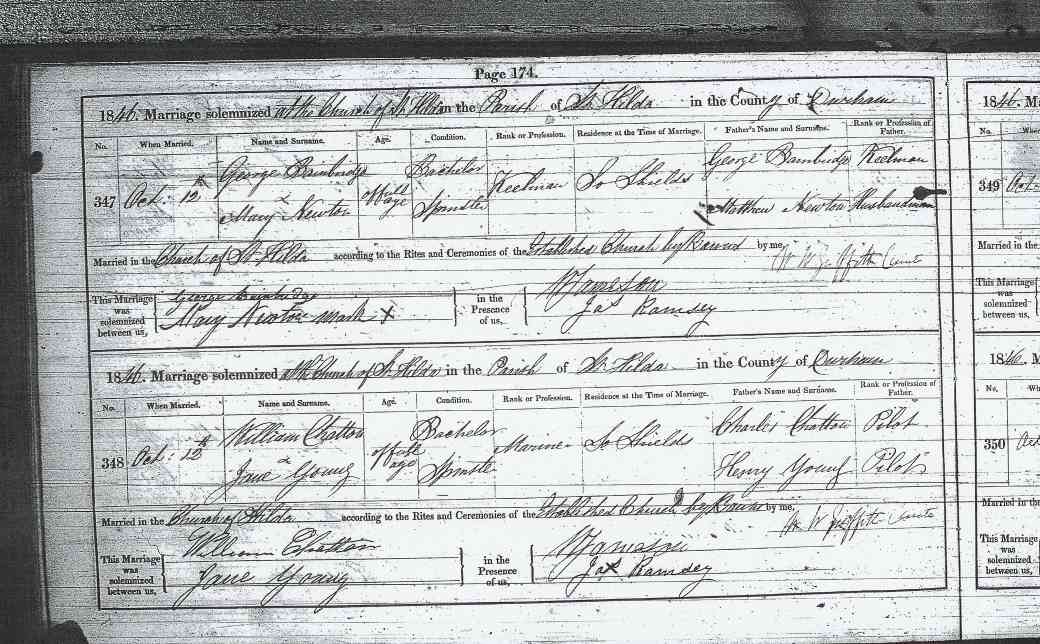 Page 174.
1846. Marriage solemnized at the Church of St. Hilda in the Parish of St. Hilda in the County of Durham
No. When Married. Name and Surname. Age. Condition. Rank or Profession. Residence at the Time of Marriage. Father's Name and Surname. Rank or Profession of Father.
347 Oct. 12th George Bainbridge of full age Bachelor Keelman So Shields George Bainbridge Keelman
& Mary Newton Spinster Matthew Newton Husbandman
Married in the Church of St. Hilda according to the Rites and Ceremonies of the Established Church by Banns by me, W Griffith Curate
This Marriage was solemnized between us, George Bainbridge in the Presence of us, Jameson
Mary Newton mark X Jas Ramsey
1846. Marriage solemnized at the Church of St. Hilda in the Parish of St. Hilda in the County of Durham
No. When Married. Name and Surname. Age. Condition. Rank or Profession. Residence at the Time of Marriage. Father's Name and Surname. Rank or Profession of Father.
348 Oct. 12th William Chatton of full age Bachelor Mariner So Shields Charles Chatton Pilot
& Jane Young Spinster Henry Young Pilot
Married in the Church of Hilda according to the Rites and Ceremonies of the Established Church by Banns by me, W Griffith Curate
This Marriage was solemnized between us, William Chatton in the Presence of us, Jameson
Jane Young Jas Ramsey
1846. Ma
No.
349 Oct.
Married in the
This Marriage was solemnized between us,
1846.
No.
350 Oct
Married in the
This Marriage was solemnized between us,